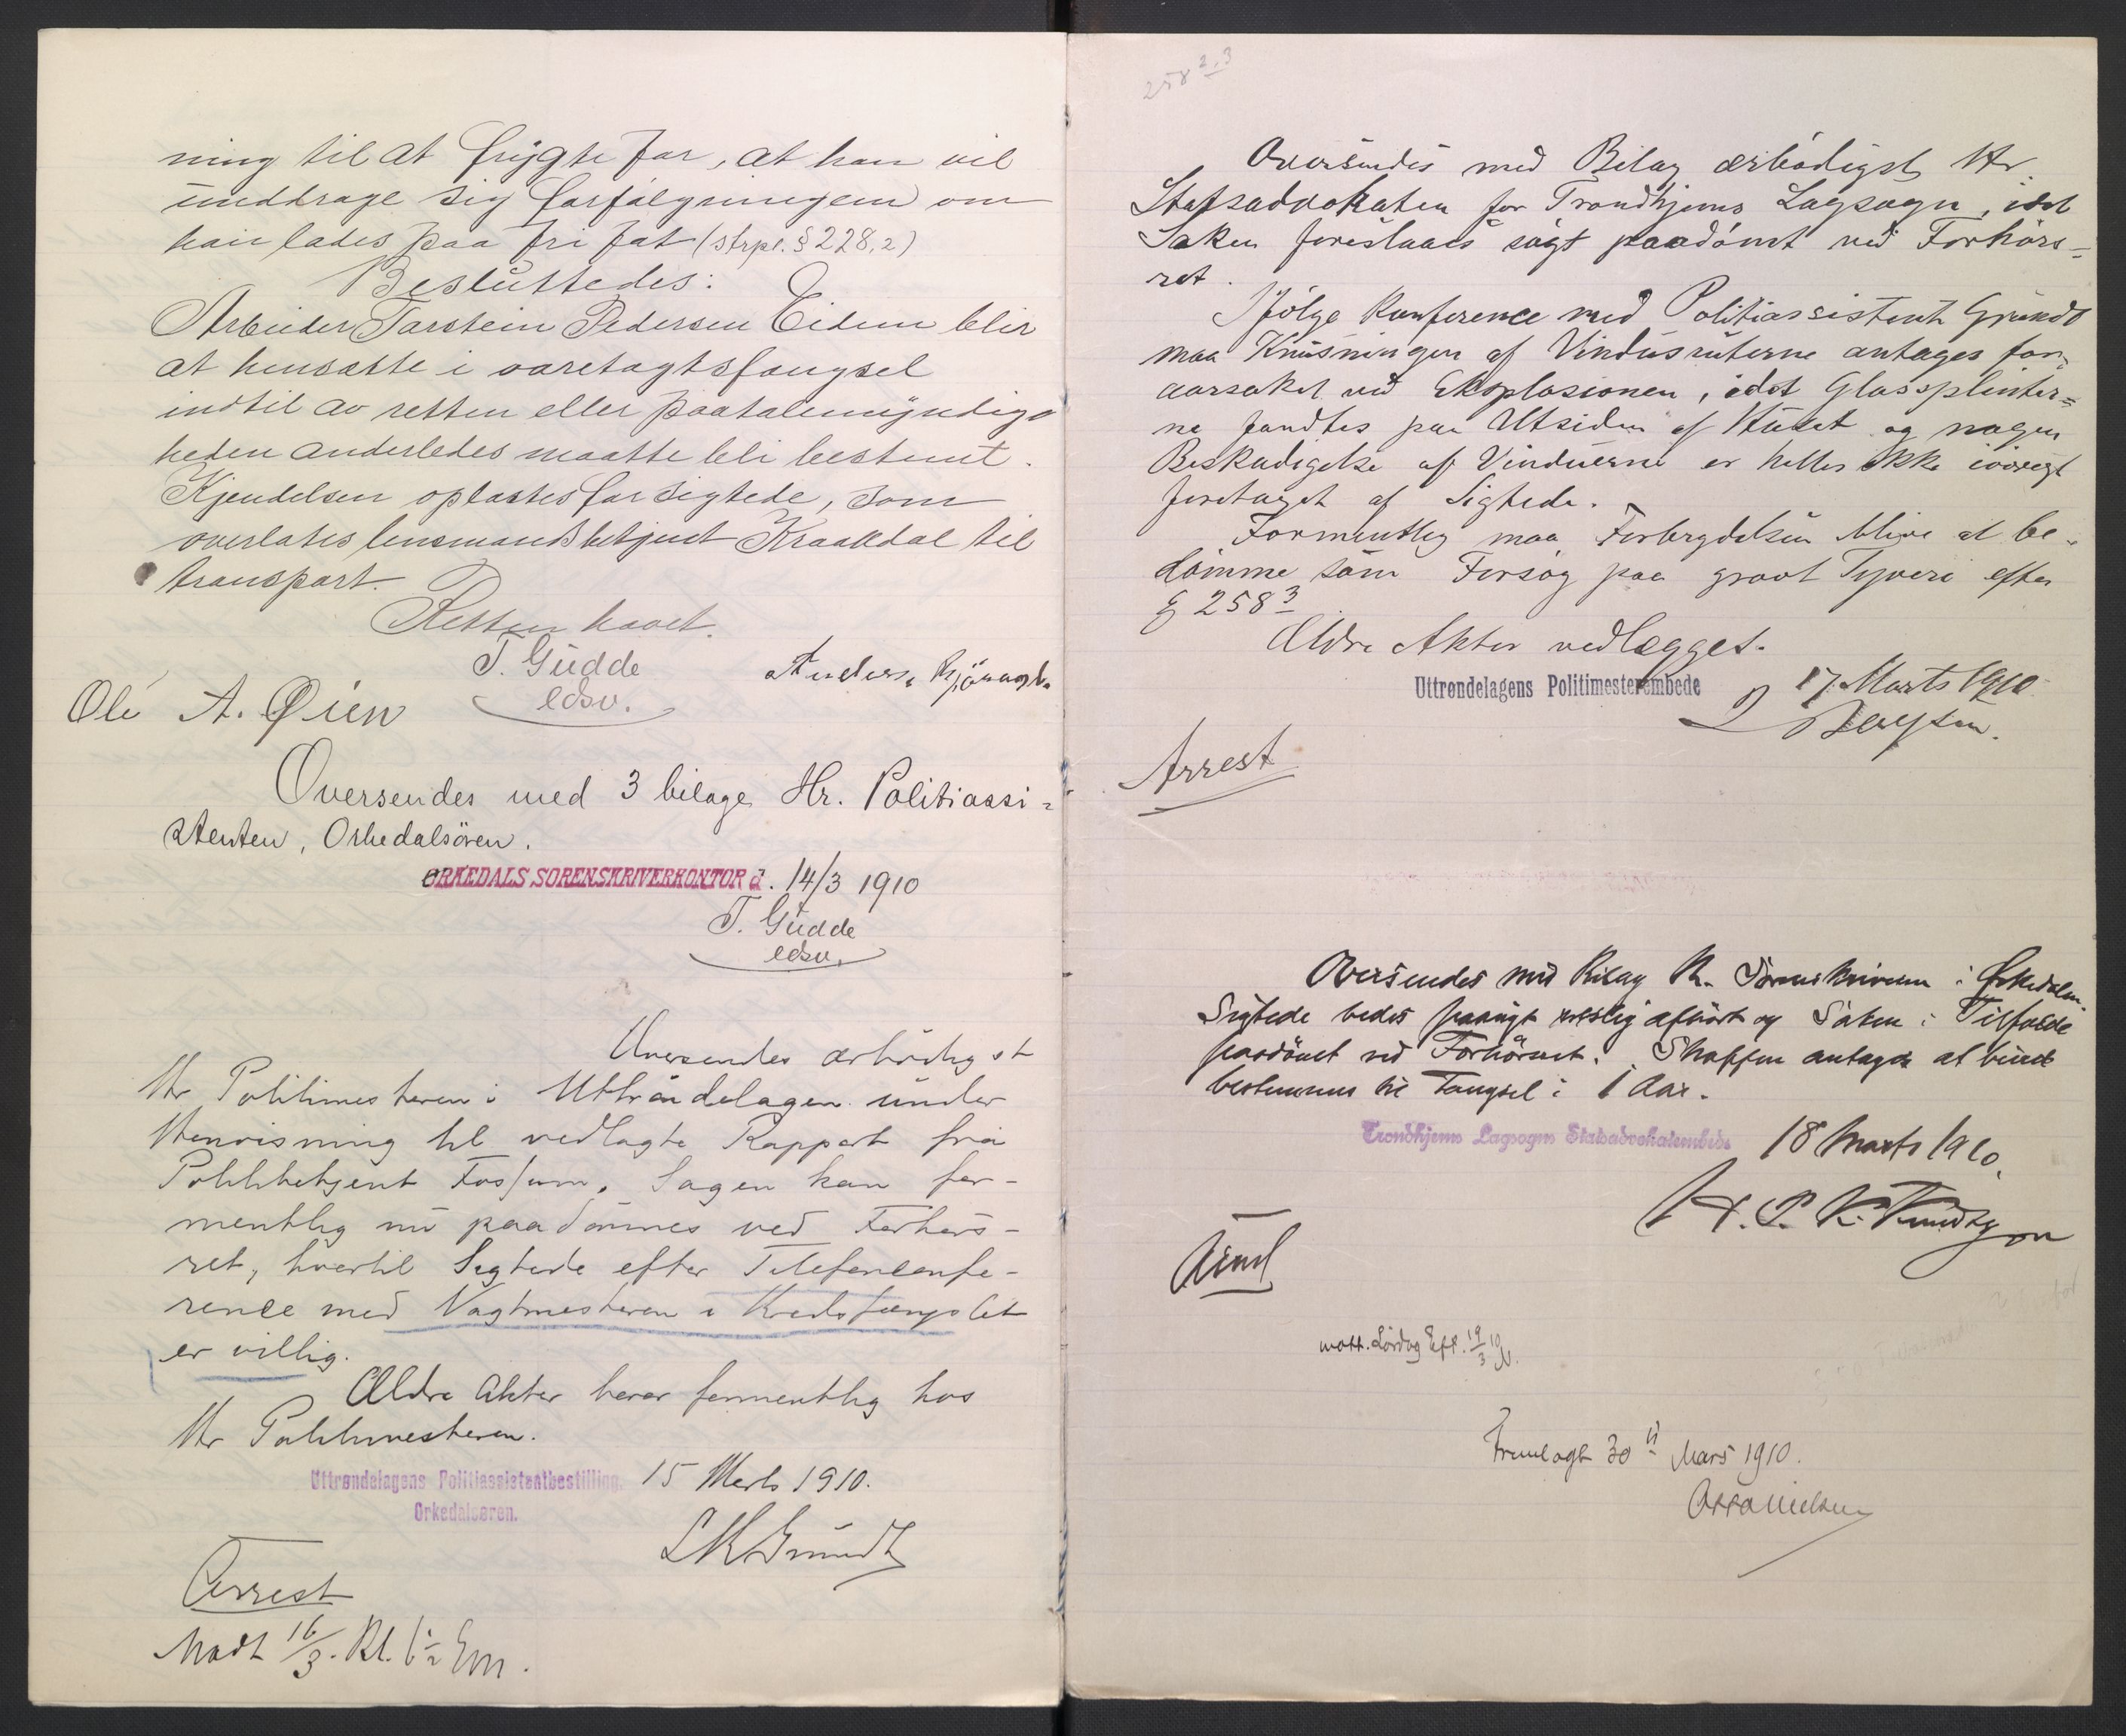 ning til at frygte for, at han vil
unddrage sig forfølgningen om
han lades paa fri fot (strpl. § 228,2)
Besluttedes:
Arbeider Torstein Pedersen Eidem blir
at hensætte i varetægtsfængsel
indtil av retten eller paatalemyndig-
heden anderledes maatte bli bestemt.
Kjendelsen oplæstes for sigtede, som
overlates lensmandsbetjent Kraakdal til
transport.
Retten hævet.
T. Gudde
edsv.
Anders
Ole A. Øien
Oversendes med 3 bilage Hr. Politiassi-
stenten, Orkedalsøren.
ORKEDALS SORENSKRIVERKONTOR d. 14/3 1910
T. Gudde
edsv.
Oversendes ærbødigst
Hr Politimesteren i Uttrøndelagen under
Henvisning til vedlagte Rapport fra
Politibetjent Fossum. Sagen kan for-
mentlig nu paadømmes ved Forhørs-
ret, hvortil Sigtede efter Telefonconfe-
rence med Vagtmesteren i Kredsfængslet
er villig.
Ældre Akter beror formentlig hos
Hr Politimesteren.
Uttrøndelagens Politiassistentbestilling, 15 Marts 1910.
Orkedalsøren.
Grundt
Arrest
Modt 16/3. Kl. 6 ½ Em.
258 2.3
Oversendes med Bilag ærbødigst Hr.
Statsadvokaten for Trondhjems Lagsogn, idet
Saken foreslaaes søgt paadømt ved Forhørs-
ret.
Ifølge Konference med Politiassistent Grundt
maa Knusningen af Vindusruterne antages for-
aarsaket ved Eksplosionen, idet Glassplinter-
ne fandtes paa Utsiden af Huset og nogen
Beskadigelse af Vinduerne er heller ikke iøvrigt
foretaget af Sigtede.
Formentlig maa Forbrydelsen blive at be-
dømme som Forsøg paa grovt Tyveri efter
§ 258 3
Ældre Akter vedlægges.
Uttrøndelagens Politimesterembede 17 Marts 1910
Arrest
Oversendes med Bilag Hr. Sorenskriveren i Orkedalen
Sigtede bedes paanyt retslig afhørt og Saken i Tilfælde
paadømt ved Forhørsret. Straffen antages at burde
bestemmes til Fængsel i 1 Aar.
Trondhjems Lagsogns Statsadvokatembede 18 Marts 1910.
mott. Lørdag Eft. 19/3 10
Fremlagt 30 Mars 1910.